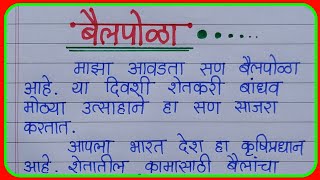 बैलपोळा
माझा आवडता सण बैलपोळा
आहे. या दिवशी शेतकरी बांधव
मोठ्या उत्साहाने हा सण साजरा
करतात.
आपला भारत देश हा कृषिप्रधान
आहे. शेतातील कामासाठी बैलांचा